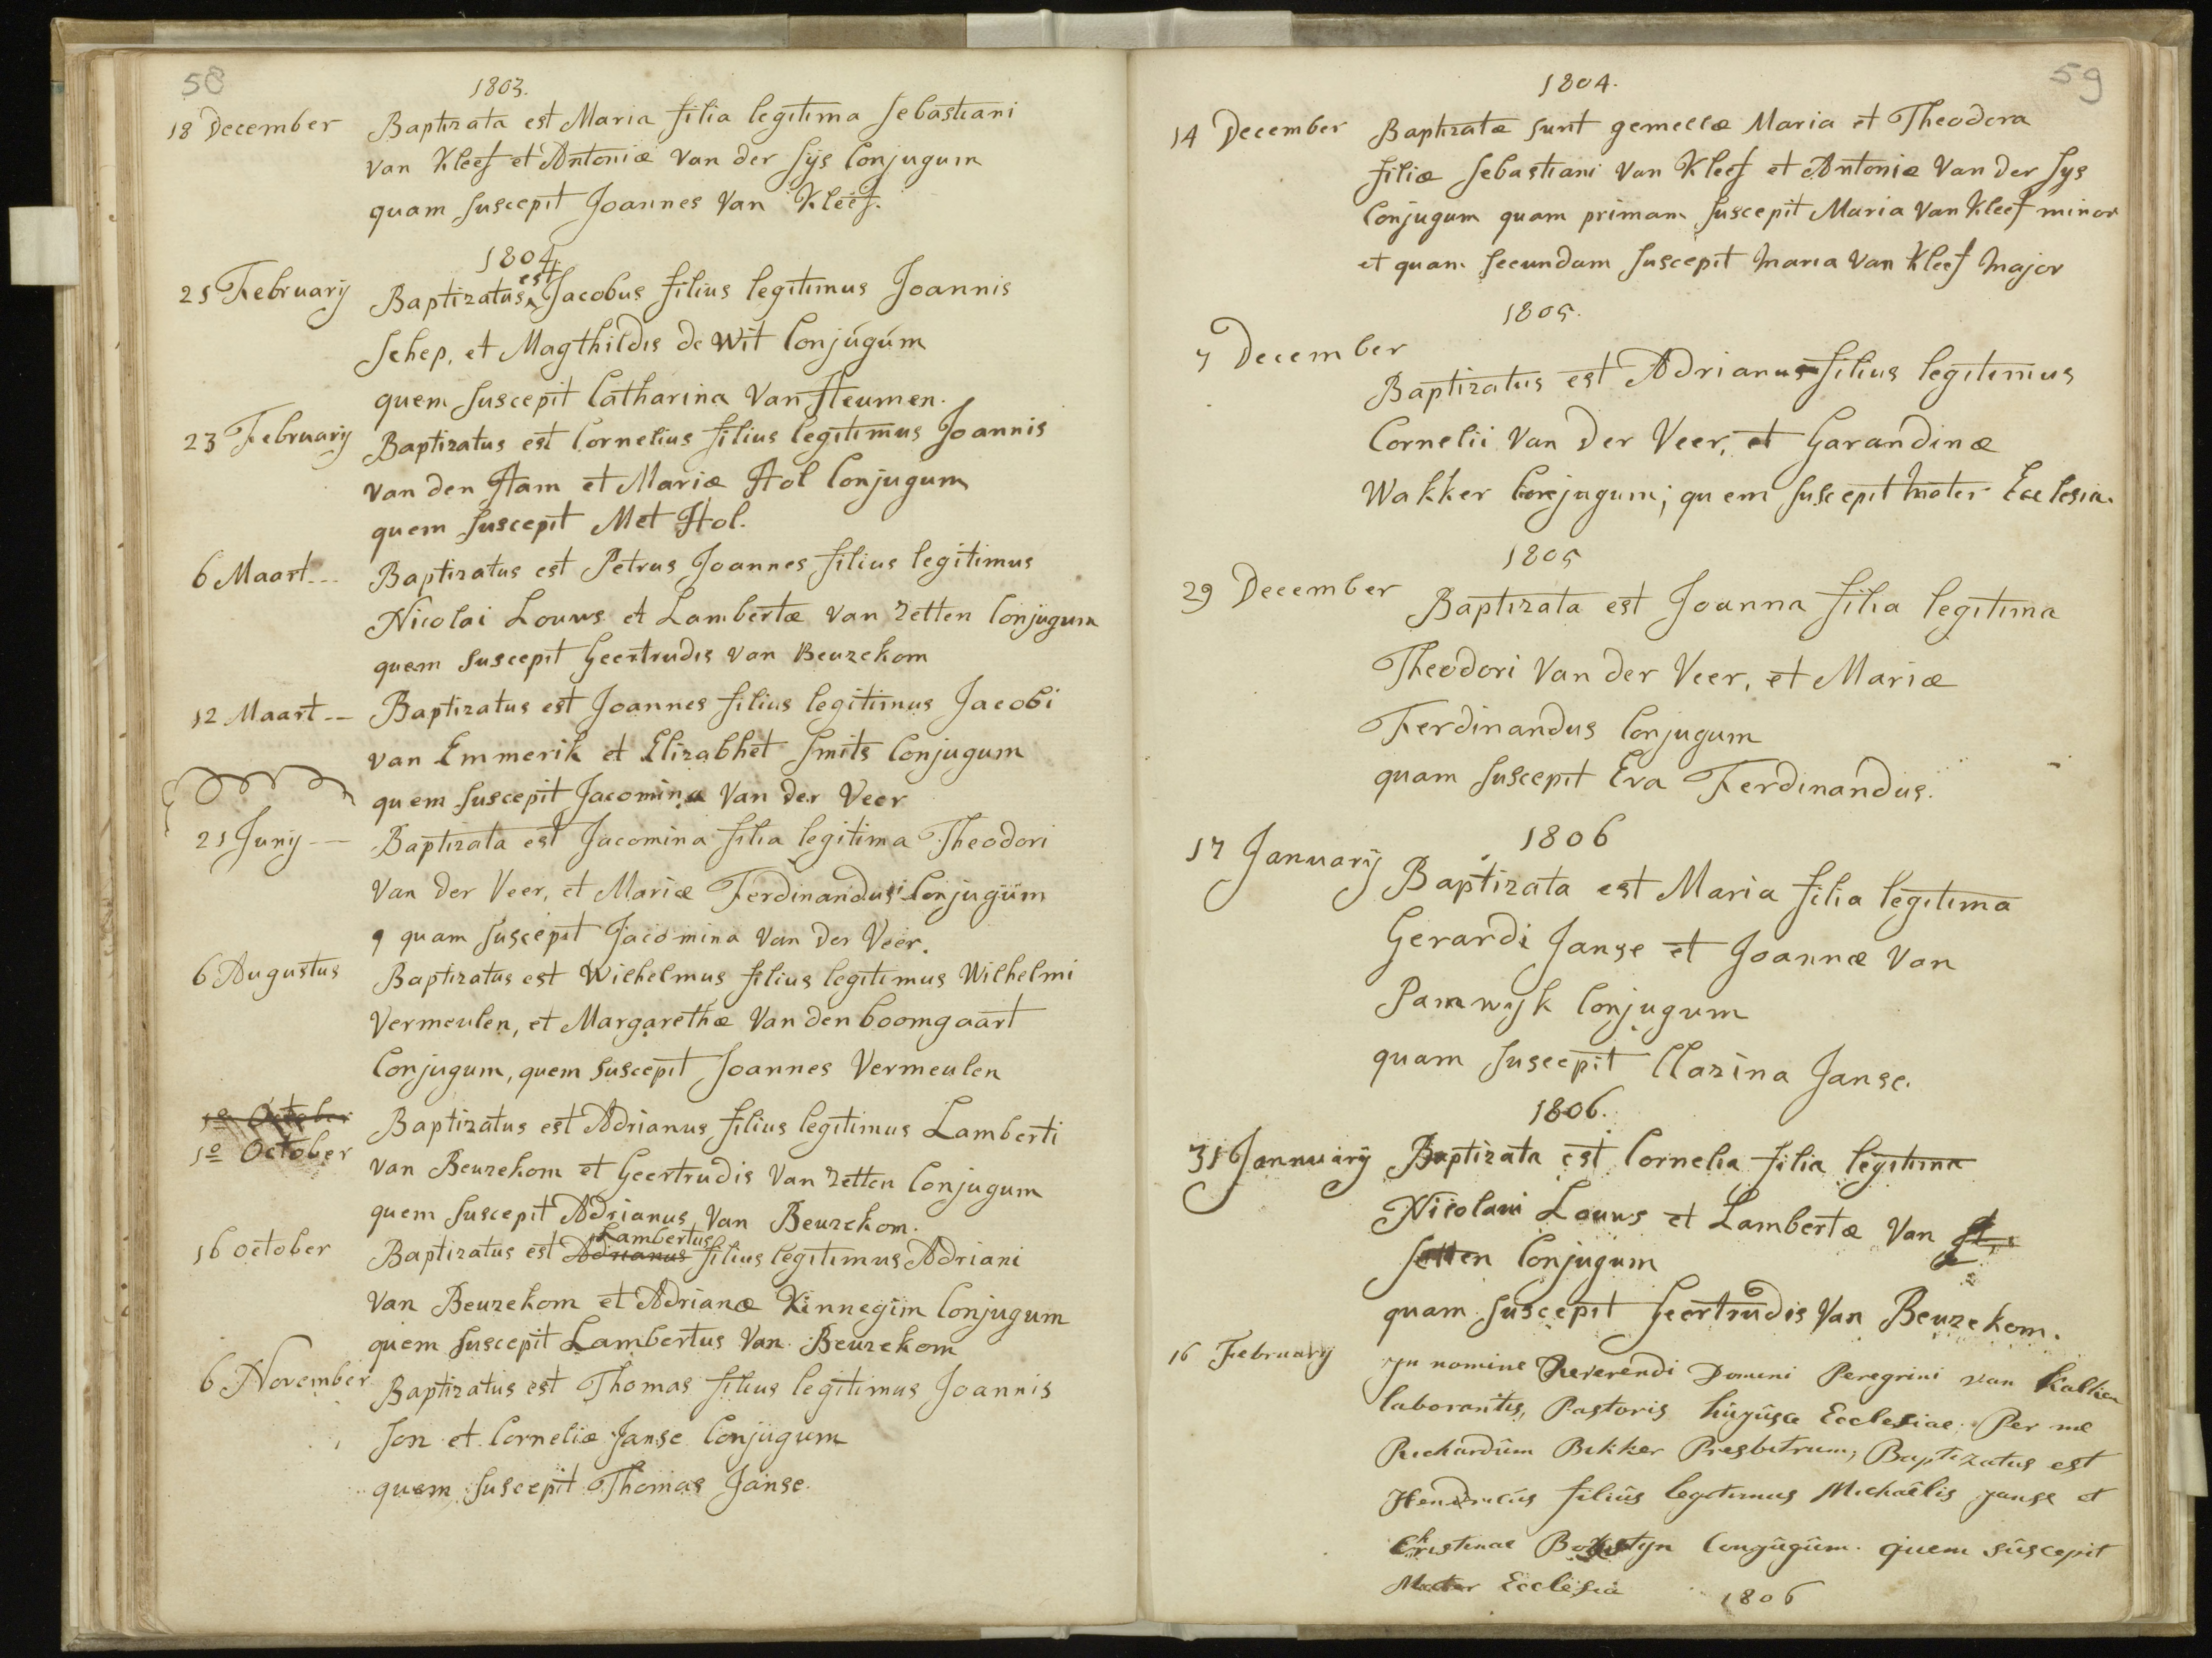 58
1803.
18 December Baptizata est Maria filia legitima Sebastiani
van Kleef et Antoniæ van der Sÿs Conjugum
quam suscepit Joannes van Kleef.
1804.
21 Februarÿ Baptizatus est Jacobus filius legitimus Joannis
Schep, et Magthildis de Wit Conjúgúm
quem suscepit Catharina van Heumen.
23 Februarÿ Baptizatus est Cornelius filius legitimus Joannis
van den Ham et Mariæ Hol Conjugum
quem suscepit Met Hol.
6 Maart Baptizatus est Petrus Joannes filius legitimus
Nicolai Louws et Lambertæ van Zetten Conjugum
quem suscepit Geertrudis van Beuzekom
12 Maart Baptizatus est Joannes filius legitimus Jacobi
van Emmerik et Elizabhet Smits Conjugum
quem suscepit Jacomina van der Veer
21 Junÿ Baptizata est Jacomina filia legitima Theodori
van der Veer, et Mariæ Ferdinandusi Conjugum
q quam suscepit Jacomina van der Veer.
6 Augustus Baptizatus est Wilhelmus filius legitimus Wilhelmi
Vermeulen, et Margarethæ van den boomgaart
Conjugum, quem suscepit Joannes Vermeulen
1º October
1º October Baptizatus est Adrianus filius legitimus Lamberti
van Beuzekom et Geertrudis van Zetten Conjugum
quem suscepit Adrianus van Beuzekom.
16 october Baptizatus est Adrianus Lambertus filius legitimus Adriani
van Beuzekom et Adrianæ Kinnegim Conjugum
quem suscepit Lambertus van Beuzekom
6 November Baptizatus est Thomas filius legitimus Joannis
Son et Corneliæ Janse Conjugum
quem suscepit Thomas Janse.
59
1804.
14 December Baptizatæ sunt gemellæ Maria et Theodora
filiæ Sebastiani van Kleef et Antoniæ van der Sys
Conjugum quam primam suscepit Maria van Kleef minor
et quam secundam suscepit Maria van Kleef Major
1805.
7 December
Baptizatus est Adrianus filius legitimus
Cornelii van der Veer, et Garandinæ
Wakker Conjugum; quem suscepit Mater Ecclesia.
1805
29 December Baptizata est Joanna filia legitima
Theodori van der Veer, et Mariæ
Ferdinandus Conjugum
quam suscepit Eva Ferdinandus.
1806
17 Januarÿ Baptizata est Maria filia legitima
Gerardi Janse et Joannæ van
Pamwyk Conjugum
quam suscepit Clazina Janse.
1806.
31 Jannuarÿ Baptizata est Cornelia filia legitima
Nicolaui Louws et Lambertæ van
Setten Conjugum
quam suscepit Geertrudis van Beuzekom.
16 Februarÿ Jn nomine Reverendi Domini Peregrini van Kalken
laborantis, Pastoris hujusce Ecclesiae. Per me
Richardum Bekker Presbitrum, Baptizatus est
Hendricus filius legitimus Michaëlis Janse et
Christinae Conjugum. quem suscepit
Mater Ecclesia 1806